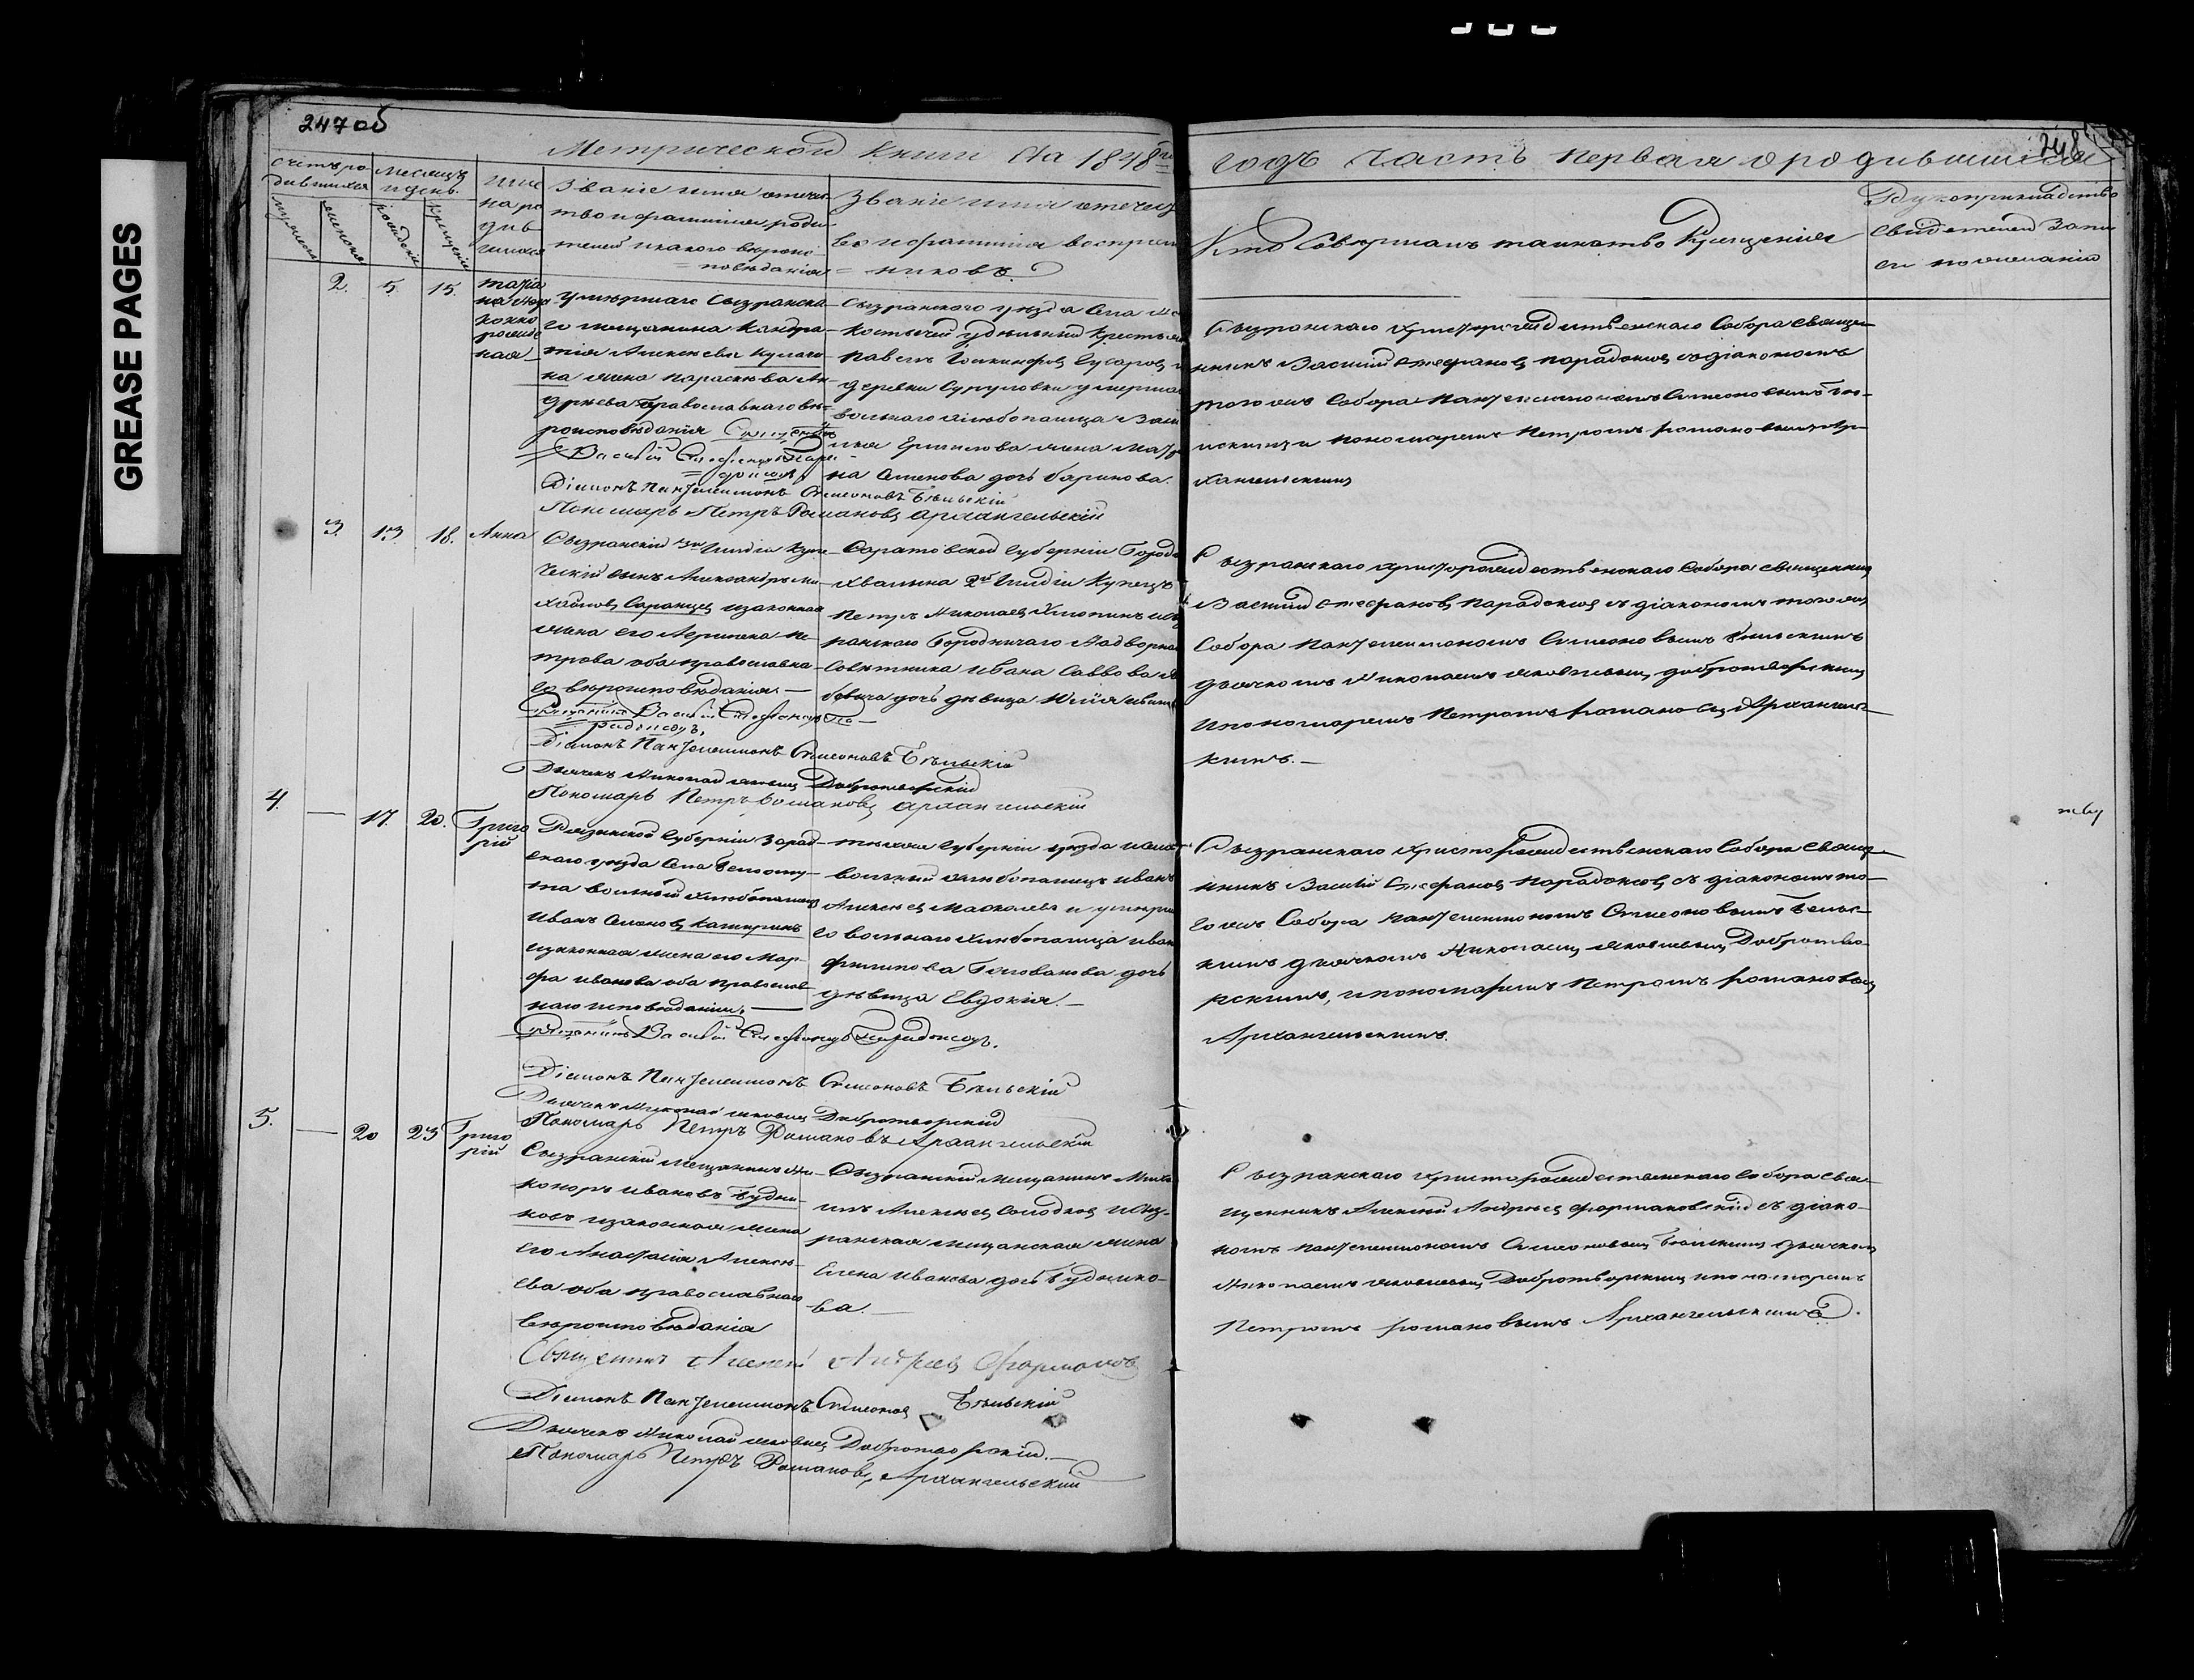 GREASE PAGES
247 об
Метрической Книги На 1848й
годъ Часть первая о родившихся
248
Счетъ ро-
дившихся
мужеска
женска
Месяцъ
и день.
рожденія
крещенія
Име
на ро
див
шихся
Званіе имя отечес
тво и фамилія роди
телей и какого вероис-
поведанія
Званіе имя отечест
во и фамилія воспріем
никовъ.
Кто Совершалъ таинство Крещенія
Рукоприкладство
свидетелей Запи
си по желанію
2.
5.
15.
Умершаго Сызранска-
го мещанина Кондра-
тія Алексеева
на жена параскева Ан-
дреева православнаго ве-
роисповеданія Священникъ
Василій Стефановъ Пара-
доксовъ,
Діаконъ Пантелеимонъ Симеоновъ Бельскій
Пономарь Петръ Романовъ Архангельскій
Сызранского уезда Села
Костычей удельный Крестьянинъ
Павелъ
деревни
вольнаго хлебопашца
Ермилова жена
на Семенова дочь Баринова.
Сызранскаго Христорождественскаго Собора Священ-
никъ Василій Стефановъ Парадоксовъ съ діакономъ
тогожъ Собора Пантелеимономъ Симеоновымъ Бе-
льскимъ и пономаремъ Петромъ Романовымъ Ар-
хангельскимъ
3.
13.
18.
Анна
Сызранскій 3й Гильдіи Купе-
ческій сынъ Александръ Ми-
хайловъ Саранцев и законная
жена его Агриппена Пе-
трова оба православна-
го вероисповеданія. —
Священникъ Василій Стефановъ Па-
радоксовъ,
Діаконъ Пантелеимонъ Симеоновъ Бельскій
Дьячекъ Николай Яковлевъ Добротворскій
Пономарь Петръ Романовъ Архангельскій
Саратовской Губерніи Города
Хвалына 2й Гильдіи Купецъ
Петръ Николаев
ранскаго Городничаго Надворнаго
Советника Ивана Саввова
дочь девица Юлія Иванова
Сызранскаго Христорождественскаго Собора Священникъ
Василій Стефановъ Парадоксовъ съ діакономъ тогожъ
Собора Пантелеимономъ Симеоновымъ Бельскимъ
дьячкомъ Николаемъ Яковлевымъ Добротворскимъ
и пономаремъ Петромъ Романовымъ Архангельс-
кимъ. —
4.
—
17.
20.
Григо
рій
Рязанской Губерніи Зарай-
скаго уезда Села Белоому-
та вольный хлебопашецъ
Иванъ Семеновъ
и законная жена его Мар-
фа Иванова оба православ
наго исповеданія. —
Священникъ Василій Стефановъ Парадоксовъ.
Діаконъ Пантелеимонъ Симеоновъ Бельскій
Дьячекъ Николай Яковлевъ Добротворскій
Пономарь Петръ Романовъ Архангельскій
тояже Губерніи уезда и села
вольный хлебопашецъ Иванъ
Алексеев и умерша
го вольнаго хлебопашца Ивана
Филипова Голованова дочь
девица Евдокія. —
Сызранскаго Христорождественскаго Собора Свящ-
нникъ Василій Стефановъ Парадоксовъ съ діакономъ то-
гожъ Собора Пантелеимономъ Симеоновымъ Бельс-
кимъ дьячкомъ Николаемъ Яковлевымъ Добротво-
рскимъ, и пономаремъ Петромъ Романовымъ
Архангельскимъ.
5.
—
20
23
Григо
рій
Сызранскій мещанинъ Ни-
каноръ Ивановъ Будни-
ковъ и законная жена
его Анастасія Алексе-
ева оба православнаго
вероисповеданія
Священникъ Алексей Андреевъ Формаков
Діаконъ Пантелеимонъ Симеоновъ Бельскій
Дьячекъ Николай Яковлевъ Добротворскій. —
Пономарь Петръ Романовъ, Архангельскій
Сызранскій мещанинъ Миха
илъ Алексеев Солодков и Сыз-
ранская мещанская жена
Елена Иванова дочь Буднико-
ва. —
Сызранскаго Христорождественскаго Собора Свя-
щенникъ Алексей Андреев Формаковскій съ діако-
номъ Пантелеимономъ Симеоновымъ Бельскимъ дьячкомъ
Николаемъ Яковлевымъ Добротворскимъ и пономаремъ
Петромъ Романовымъ Архангельскимъ.